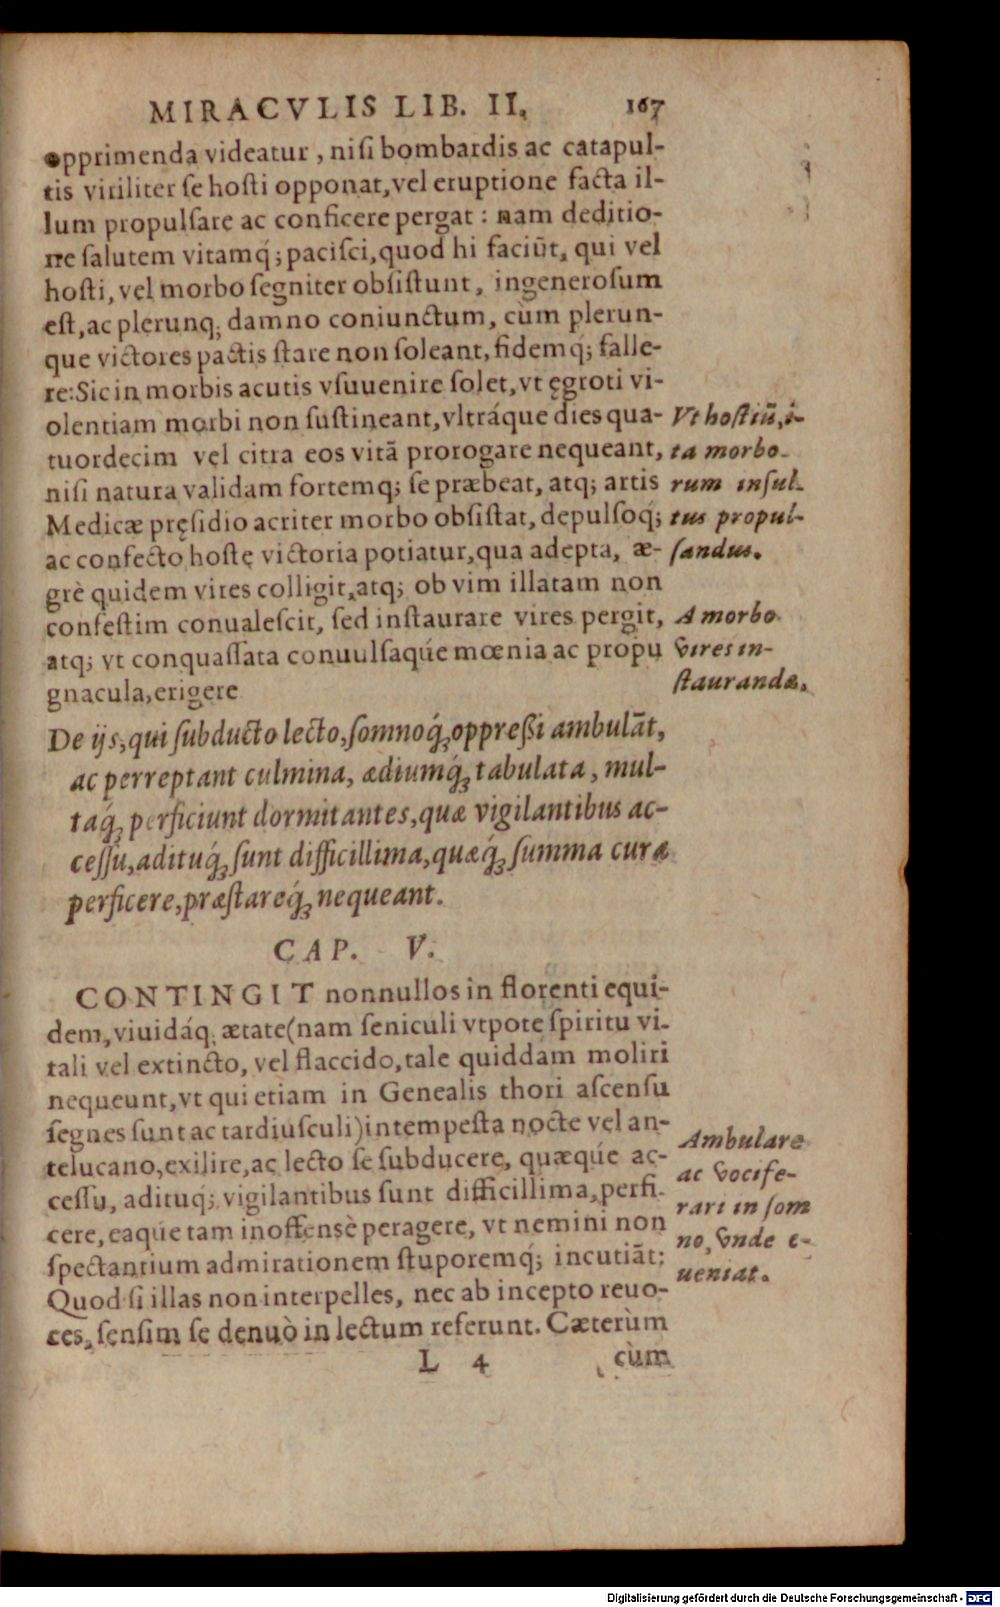 MIRACVLIS LIB. II. 167
opprimenda videatur, nisi bombardis ac catapul-
tis viriliter se hosti opponat, vel eruptione facta il-
lum propulsare ac conficere pergat: nam deditio-
ne salutem vitamq́; pacisci, quod hi faciūt, qui vel
hosti, vel morbo segniter obsistunt, ingenerosum
est, ac plerunq; damno coniunctum, cùm plerun-
que victores pactis stare non soleant, fidemq́; falle-
re: Sic in morbis acutis vsuuenire solet, vt ęgroti vi-
olentiam morbi non sustineant, vltráque dies qua-
tuordecim vel citra eos vitā prorogare nequeant,
nisi natura validam fortemq; se præbeat, atq; artis
Medicæ pręsidio acriter morbo obsistat, depulsoq́;
ac confecto hoste victoria potiatur, qua adepta, æ-
grè quidem vires colligit, atq; ob vim illatam non
confestim conualescit, sed instaurare vires pergit,
atq; vt conquassata conuulsaqúe mœnia ac propu
gnacula, erigere
Vt hostiū, i-
ta morbo-
rum insul-
tus propul-
sandus.
A morbo
vires in-
staurandæ.
De ijs, qui subducto lecto, somnoq́; oppreßi ambulāt,
ac perreptant culmina, ædiumq́; tabulata, mul-
taq́; perficiunt dormitantes, quæ vigilantibus ac-
cessu, adituq́; sunt difficillima, quæq́; summa cura
perficere, præstareq́; nequeant.
CAP. V.
CONTINGIT nonnullos in florenti equi-
dem, viuidáq; ætate (nam seniculi vtpote spiritu vi-
tali vel extincto, vel flaccido, tale quiddam moliri
nequeunt, vt qui etiam in Genealis thori ascensu
segnes sunt ac tardiusculi) intempesta nocte vel an-
telucano, exilire, ac lecto se subducere, quæqúe ac-
cessu, adituq́; vigilantibus sunt difficillima, perfi-
cere, eaqúe tam inoffensè peragere, vt nemini non
spectantium admirationem stuporemq́; incutiāt:
Quod si illas non interpelles, nec ab incepto reuo-
ces, sensim se denuò in lectum referunt. Cæterùm
Ambulare
ac vocife-
rari in som
no, vnde e-
ueniat.
L 4 cùm
Digitalisierung gefördert durch die Deutsche Forschungsgemeinschaft - DFG